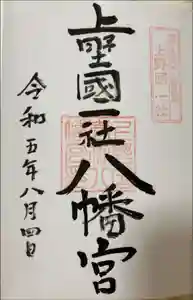 上野國一社
上野國一社八幡宮
令和五年八月四日